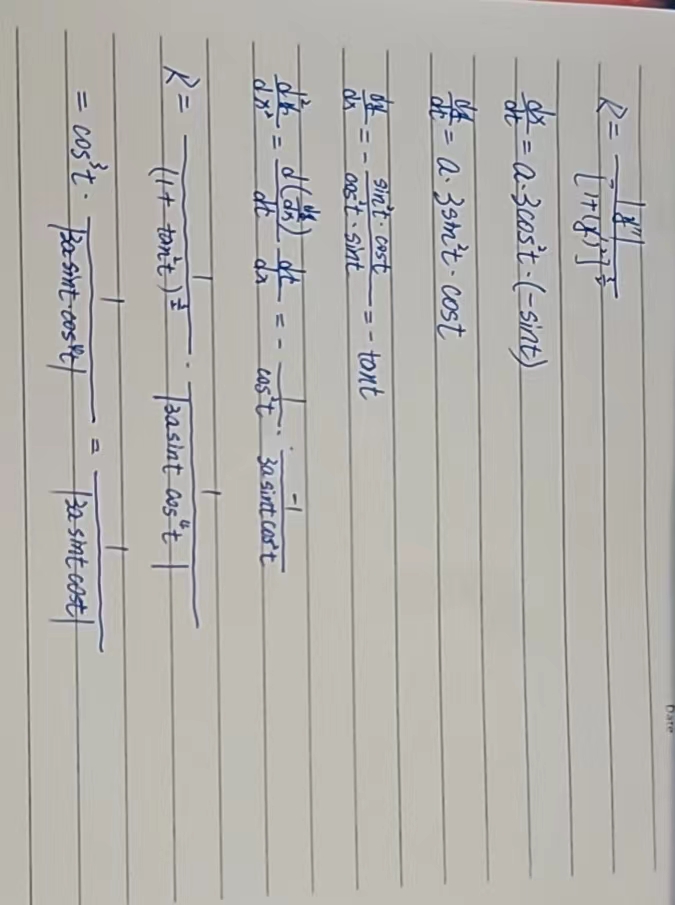 Date
K = |y''| / [1+(y')²]^(3/2)
dx/dt = a·3cos²t·(-sint)
dy/dt = a·3sin²t·cost
dy/dx = - sin²t·cost / cos²t·sint = - tant
d²y/dx² = d(dy/dx)/dt · dt/dx = - 1/cos²t · -1/3a sint cos²t
K = 1/(1+tan²t)^(3/2) · 1/|3a sint cos⁴t|
= cos³t · 1/|3a sint·cos⁴t| = 1/|3a sint cost|